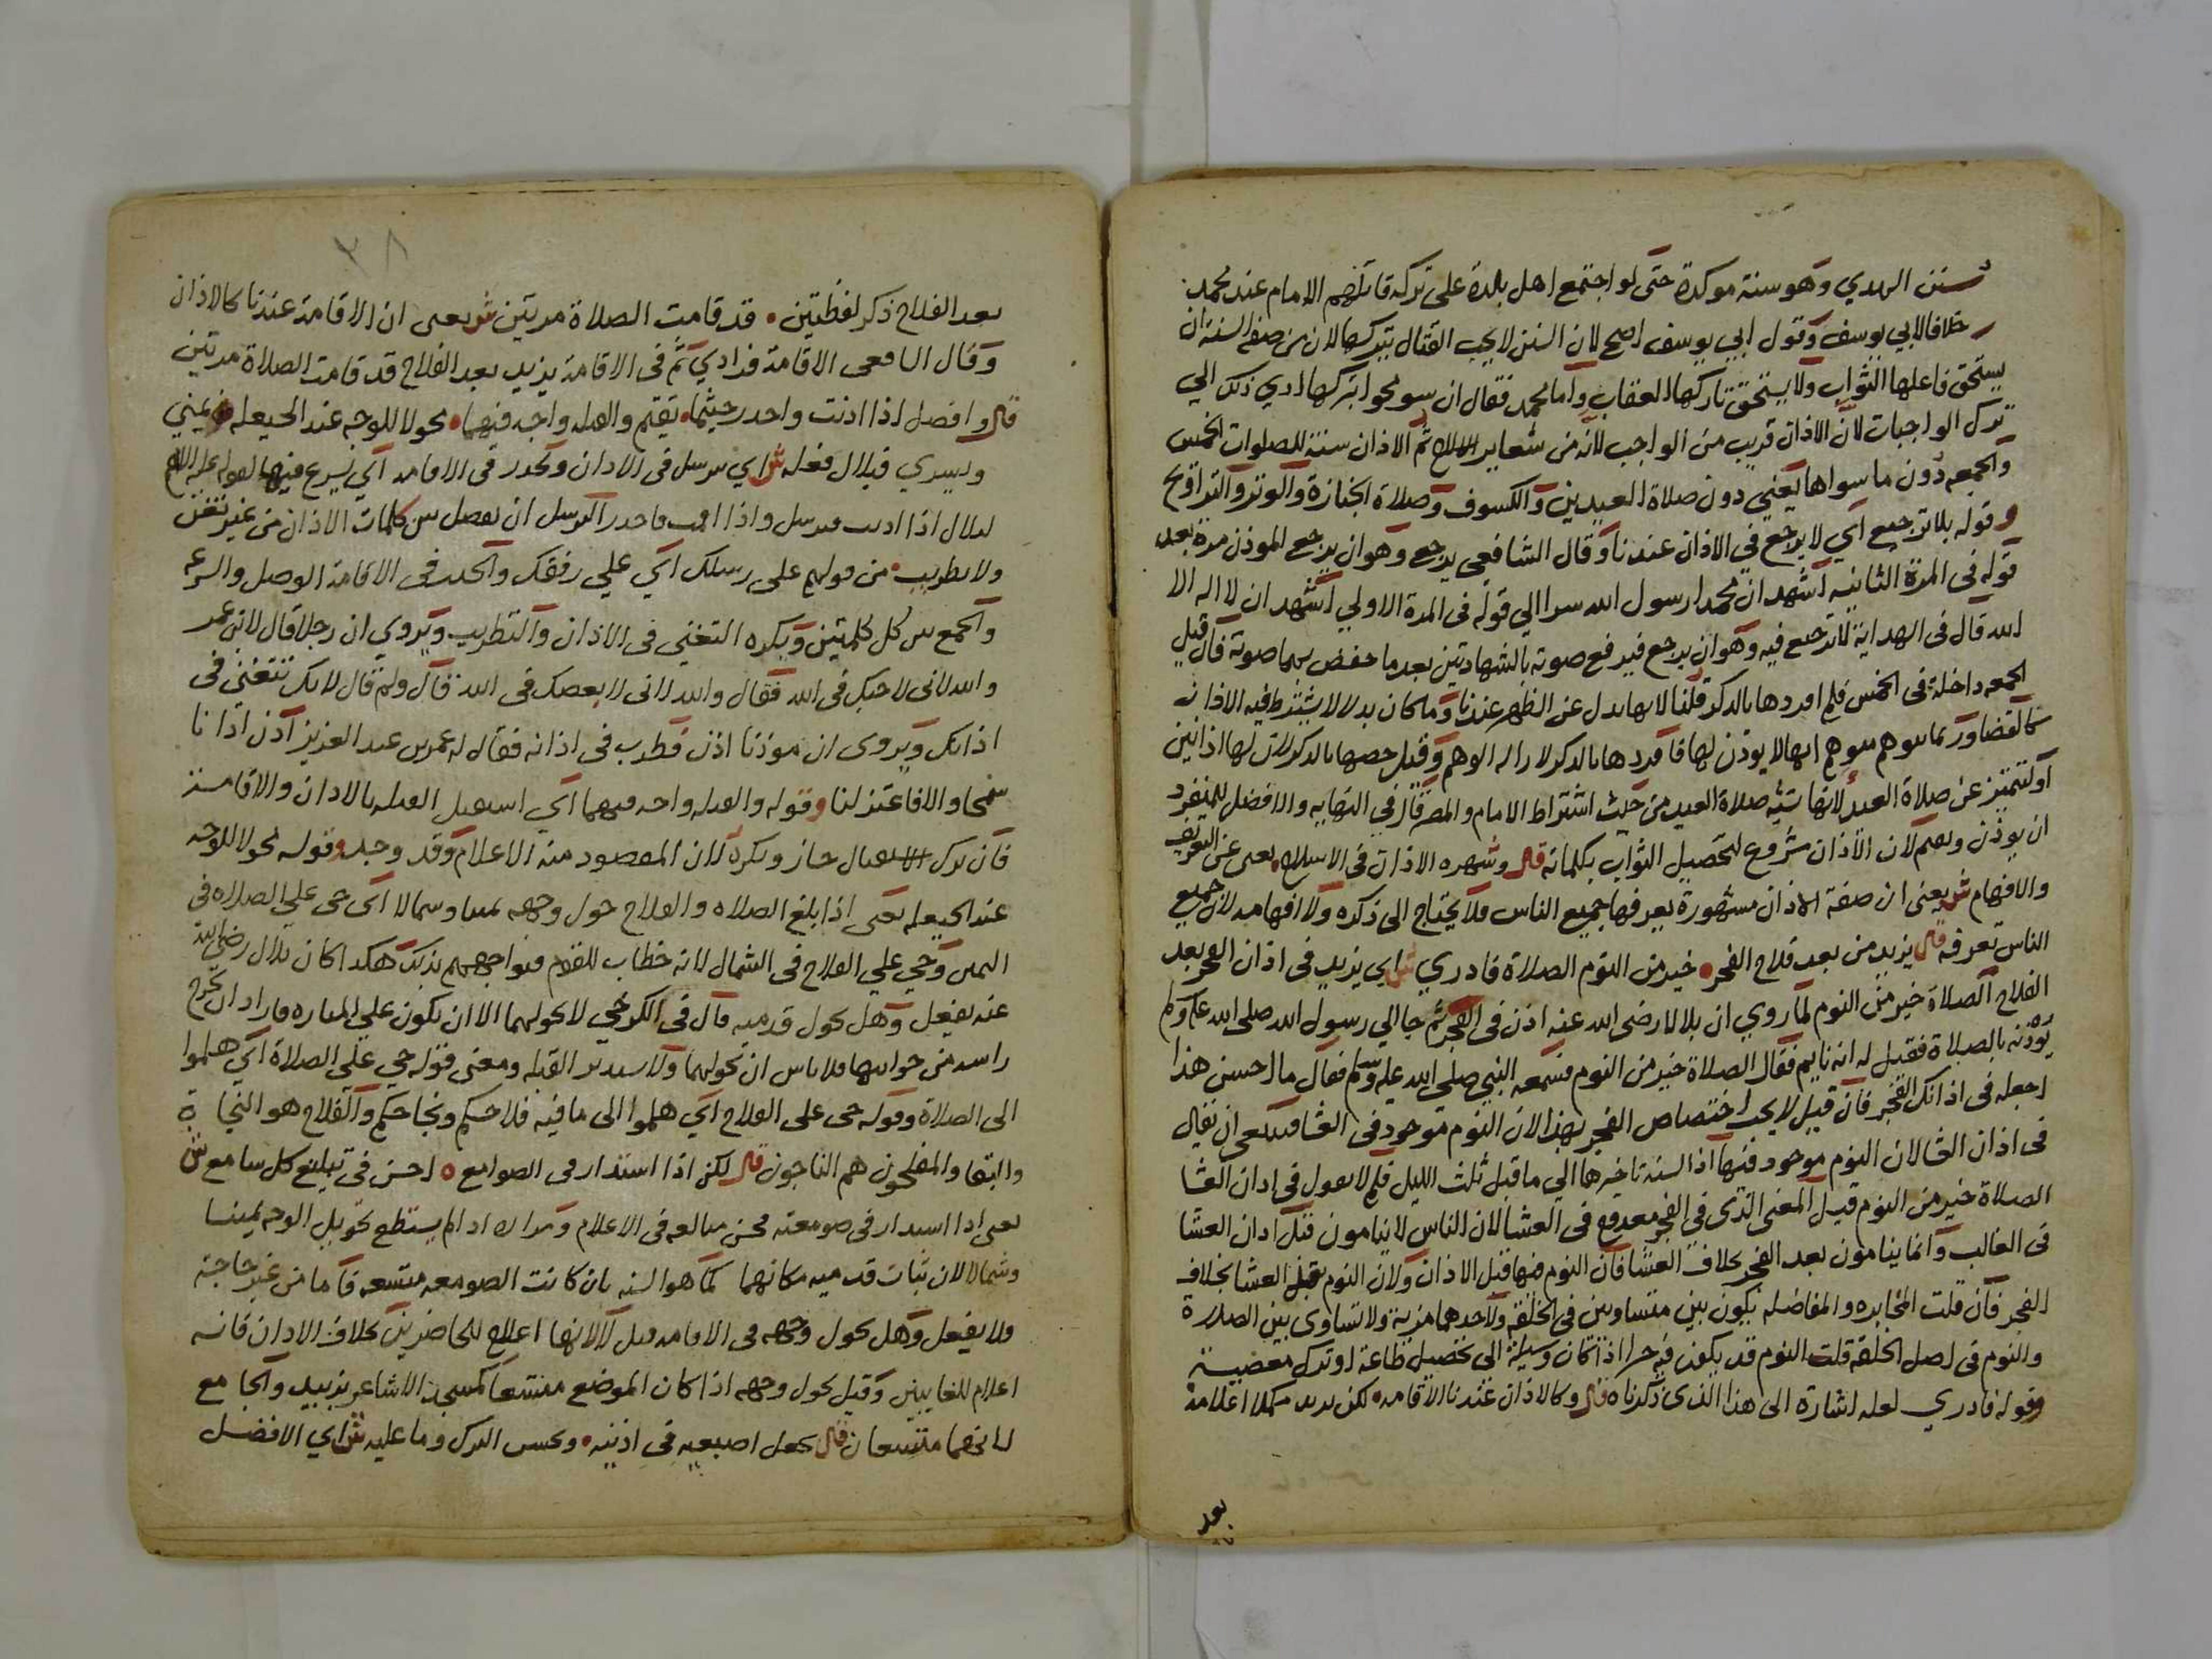 سنن الهدي وهو سنة موكدة حتى لو اجتمع اهل بلدة على تركه قاتلهم الامام عند محمد
خلافا لابي يوسف وقول ابي يوسف اصح لان السنن لا يجب القتال بتركها لان من صفة السنة ان
يستحق فاعلها الثواب ولا يستحق تاركها العقاب واما محمد فقال ان سومحوا بتركها ادي ذلك الي
ترك الواجبات لان الاذان قريب من الواجب لانه من شعاير الاسلام ثم الاذان سنة للصلوات الخمس
والجمعه دون ما سواها يعني دون صلاة العيدين والكسوف وصلاة الجنازة والوتر والتراويح
وقوله بلا ترجيع اي لا يرجع في الاذان عندنا وقال الشافعي يرجع وهو ان يرجع الموذن مرة بعد
قوله في المرة الثانيه اشهد ان محمدا رسول الله سرا الي قوله في المرة الاولي اشهد ان لا اله الا
الله قال في الهداية لا ترجيع فيه وهو ان يرجع فيرفع صوته بالشهادتين بعد ما خفض بهما صوته فان قيل
الجمعه داخلة في الخمس فلم افردها بالذكر قلنا لانها بدل عن الظهر عندنا وما كان بدلا لا يشترط فيه الاذان
كالقضا وربما يتوهم متوهم انها لا يوذن لها فافردها بالذكر لازاله الوهم وقيل خصها بالذكر لان لها اذانين
او لتتميز عن صلاة العيد لانها شبه صلاة العيد من حيث اشتراط الامام والمصر قال في النهايه والافضل للمنفرد
ان يوذن ويقيم لان الاذان مشروع لتحصيل الثواب بكلماته قال وشهره الاذان في الاسلام يغني عن التعريف
والافهام ش يعني ان صفة الاذان مشهورة يعرفها جميع الناس فلا يحتاج الى ذكره ولا افهامه لان جميع
الناس تعرفه قال يزيد من بعد فلاح الفجر خير من النوم الصلاة فادري ش اي يزيد في اذان الفجر بعد
الفلاح الصلاة خير من النوم لما روي ان بلالا رضى الله عنه اذن في الفجر ثم جا الي رسول الله صلى الله عليه وسلم
يوذنه بالصلاة فقيل له انه نايم فقال الصلاة خير من النوم فسمعه النبي صلى الله عليه وسلم فقال ما احسن هذا
اجعله في اذانك الفجر فان قيل لا يجب اختصاص الفجر بهذا لان النوم موجود في العشا فينبغي ان يقال
في اذان العشا لان النوم موجود فيها اذ السنة تاخيرها الي ما قبل ثلث الليل فلم لا يقول في اذان العشا
الصلاة خير من النوم قيل المعنى الذي في الفجر معدوم في العشا لان الناس لا ينامون قبل اذان العشا
في الغالب وانما ينامون بعد الفجر بخلاف العشا فان النوم فيها قبل الاذان ولان النوم قبل العشا بخلاف
الفجر فان قلت المخايره والمفاضله يكون بين متساويين في الخلقة ولاحدهما مزية ولا تساوي بين الصلاة
والنوم في اصل الخلقة قلت النوم قد يكون فيه خيرا اذا كان وسيلة الى تحصيل طاعة او ترك معصية
وقوله فادري لعله اشارة الى هذا الذي ذكرناه قال وكالاذان عندنا الاقامه لكن يزيد مكملا اعلامه
بعد
٣٨
بعد الفلاح ذكر لفظتين قد قامت الصلاة مرتين ش يعني ان الاقامة عندنا كالاذان
وقال الشافعي الاقامة فرادي ثم في الاقامة يزيد بعد الفلاح قد قامت الصلاة مرتين
قال وافصل اذا اذنت واحدر حيثما تقيم والقبله واجه فيهما محولا للوجه عند الحيعله يمني
ويسري فبلال فعله ش اي يترسل في الاذان ويحدر في الاقامه اي يسرع فيها لقوله عليه السلام
لبلال اذا اذنت فترسل واذا اقمت فاحدر الترسل ان يفصل بين كلمات الاذان من غير تغن
ولا تطريب من قولهم على رسلك اي علي رفقك والحدر في الاقامة الوصل والسرعه
والجمع بين كل كلمتين ويكره التغني في الاذان والتطريب ويروي ان رجلا قال لابن عمر
والله اني لاحبك في الله فقال والله اني لابغضك في الله قال ولم قال لانك تتغنى في
اذانك ويروى ان موذنا اذن فطرب في اذانه فقال له عمر بن عبد العزيز اذن اذانا
سمحا والا فاعتزلنا وقوله والقبله واجه فيهما اي استقبل القبله بالاذان والاقامه
فان ترك الاستقبال جاز ويكره لان المقصود منه الاعلام وقد وجد وقوله محولا للوجه
عند الحيعله يعني اذا بلغ الصلاه والفلاح حول وجهه يمينا وشمالا اي حي علي الصلاه في
اليمين وحي علي الفلاح في الشمال لانه خطاب للقوم فيواجههم بذلك هكذا كان بلال رضى الله
عنه يفعل وهل يحول قدميه قال في الكرخي لا يحولهما الا ان يكون علي المناره فاراد ان يخرج
راسه من جوانبها فلا باس ان يحولهما ولا يستدبر القبله ومعنى قوله حي علي الصلاة اي هلموا
الى الصلاة وقوله حي على الفلاح اي هلموا الى ما فيه فلاحكم ونجاحكم والفلاح هو النجاة
والبقا والمفلحون هم الناجون قال لكن اذا استدار في الصوامع احسن في تبليغ كل سامع ش
يعني اذا استدار في صومعته فحسن مبالغه في الاعلام ومراده اذا لم يستطع تحويل الوجه يمينا
وشمالا لان ثبات قدميه مكانهما كما هو السنه بان كانت الصومعه متسعه فاما من غير حاجة
ولا يفعل وهل يحول وجهه في الاقامه قيل لا لانها اعلام للحاضرين بخلاف الاذان فانه
اعلام للغايبين وقيل يحول وجهه اذا كان الموضع متسعا كمسجد الاشاعر بزبيد والجامع
لانهما متسعان قال يجعل اصبعيه في اذنيه ويحسن الترك وما عليه ش اي الافضل